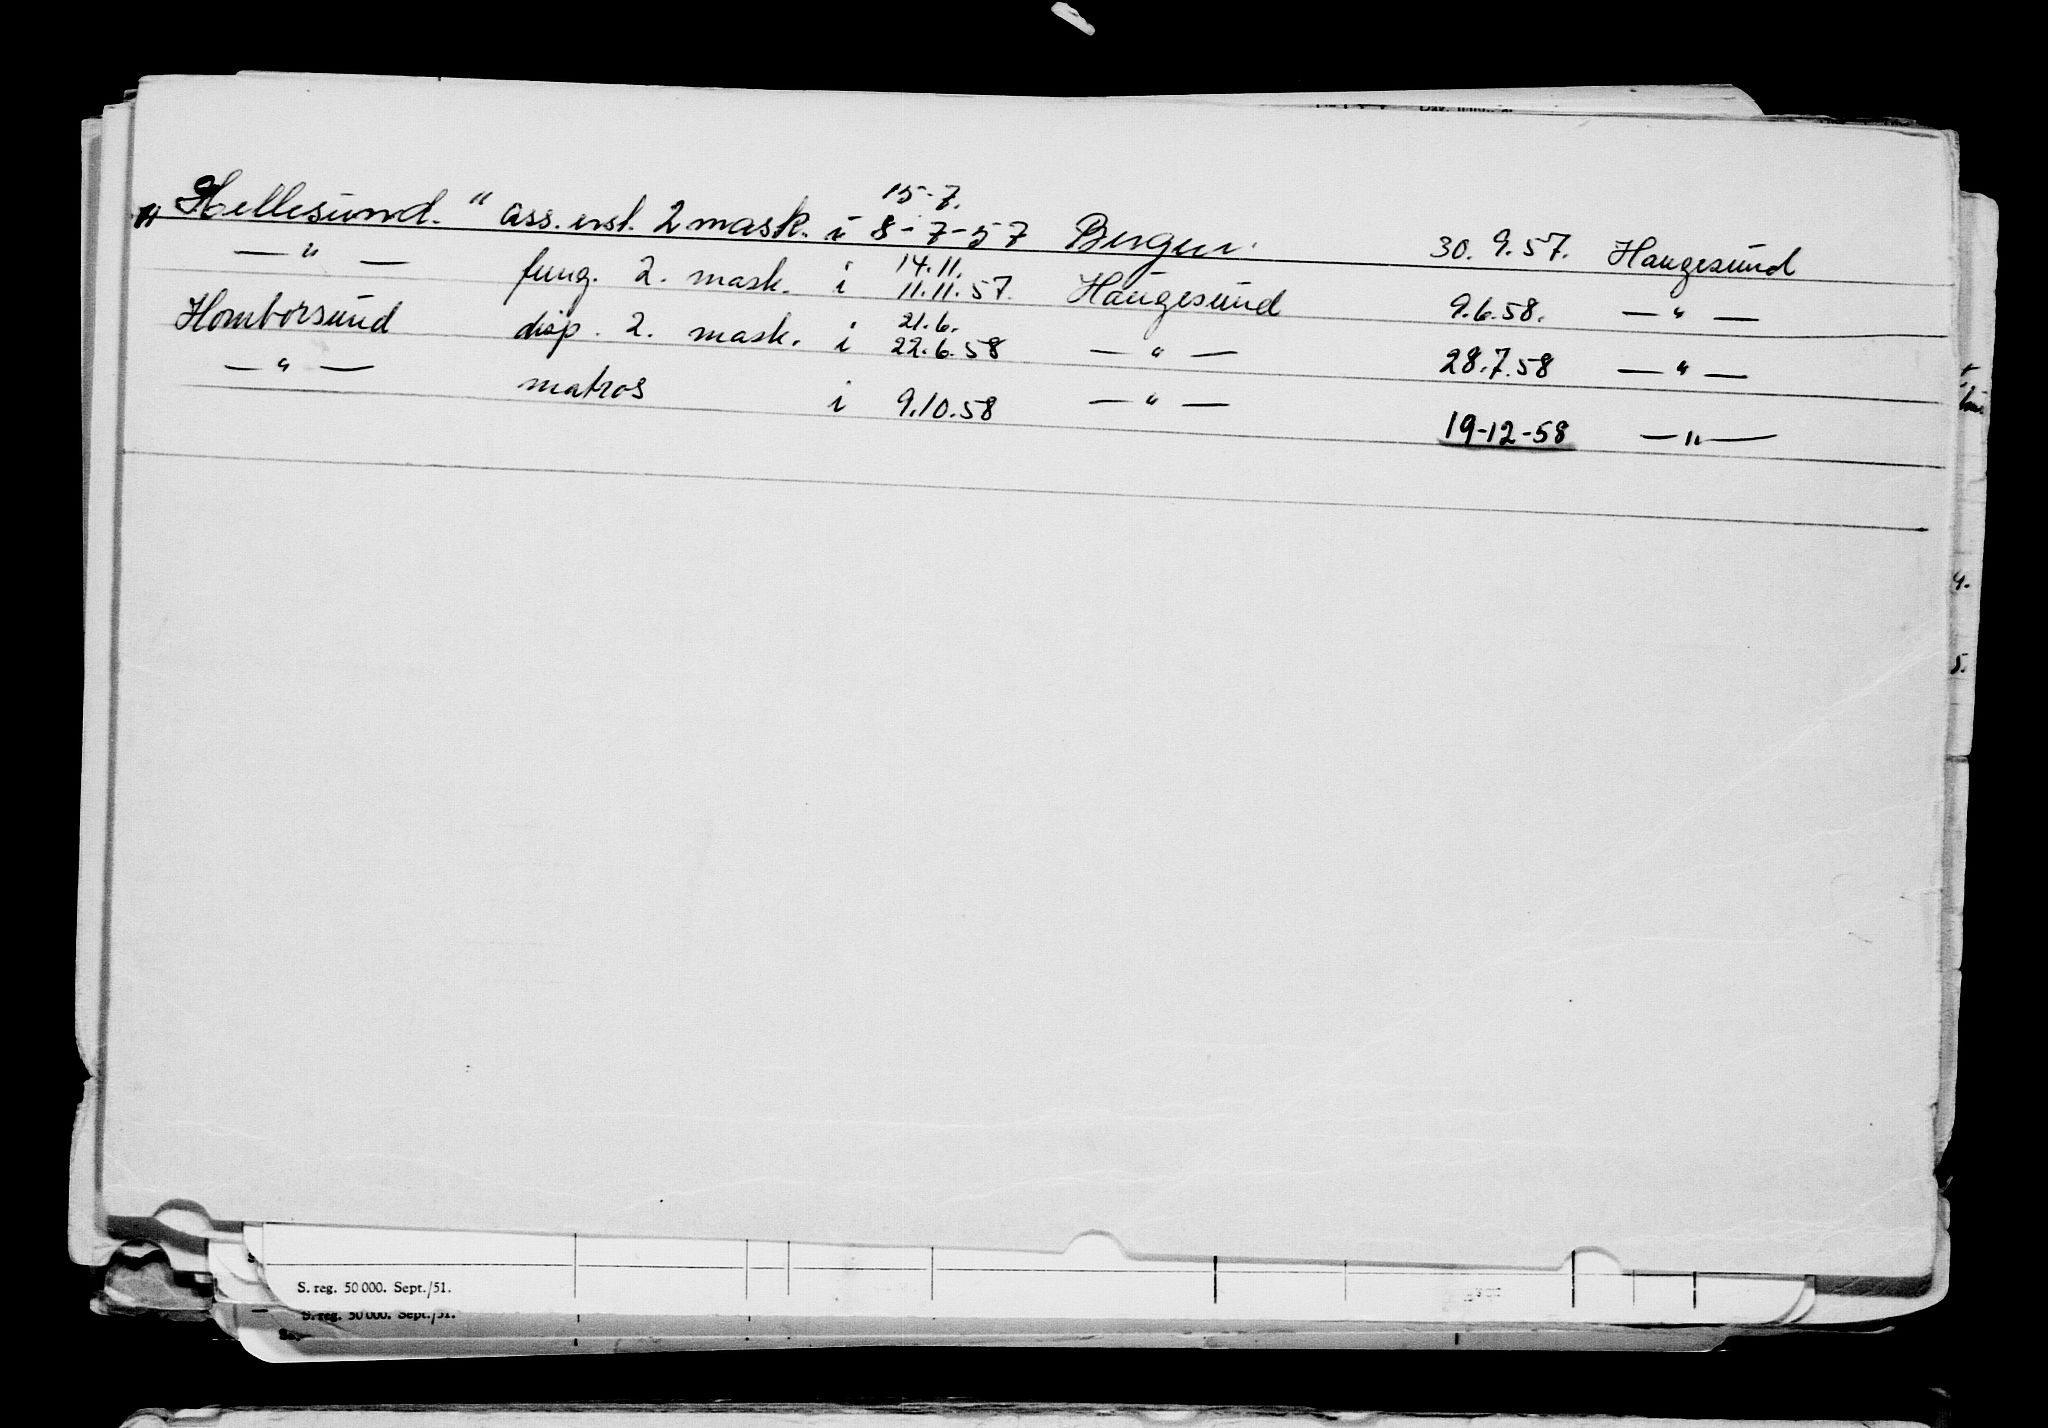 15-7.
"Hellesund." ass. erst. 2 mask. i 8-7-57 Bergen. 30. 9.57. Haugesund
14.11.
— " — fung. 2. mask. i 11.11.57. Haugesund 9.6.58. — " —
21.6.
Homborsund disp. 2. mask. i 22.6.58 — " — 28.7.58 — " —
— " — matros i 9.10.58 — " — 19-12-58 — " —
4.
5.
S. reg. 50 000. Sept./51.
S. reg. 50 000. Sept./51.